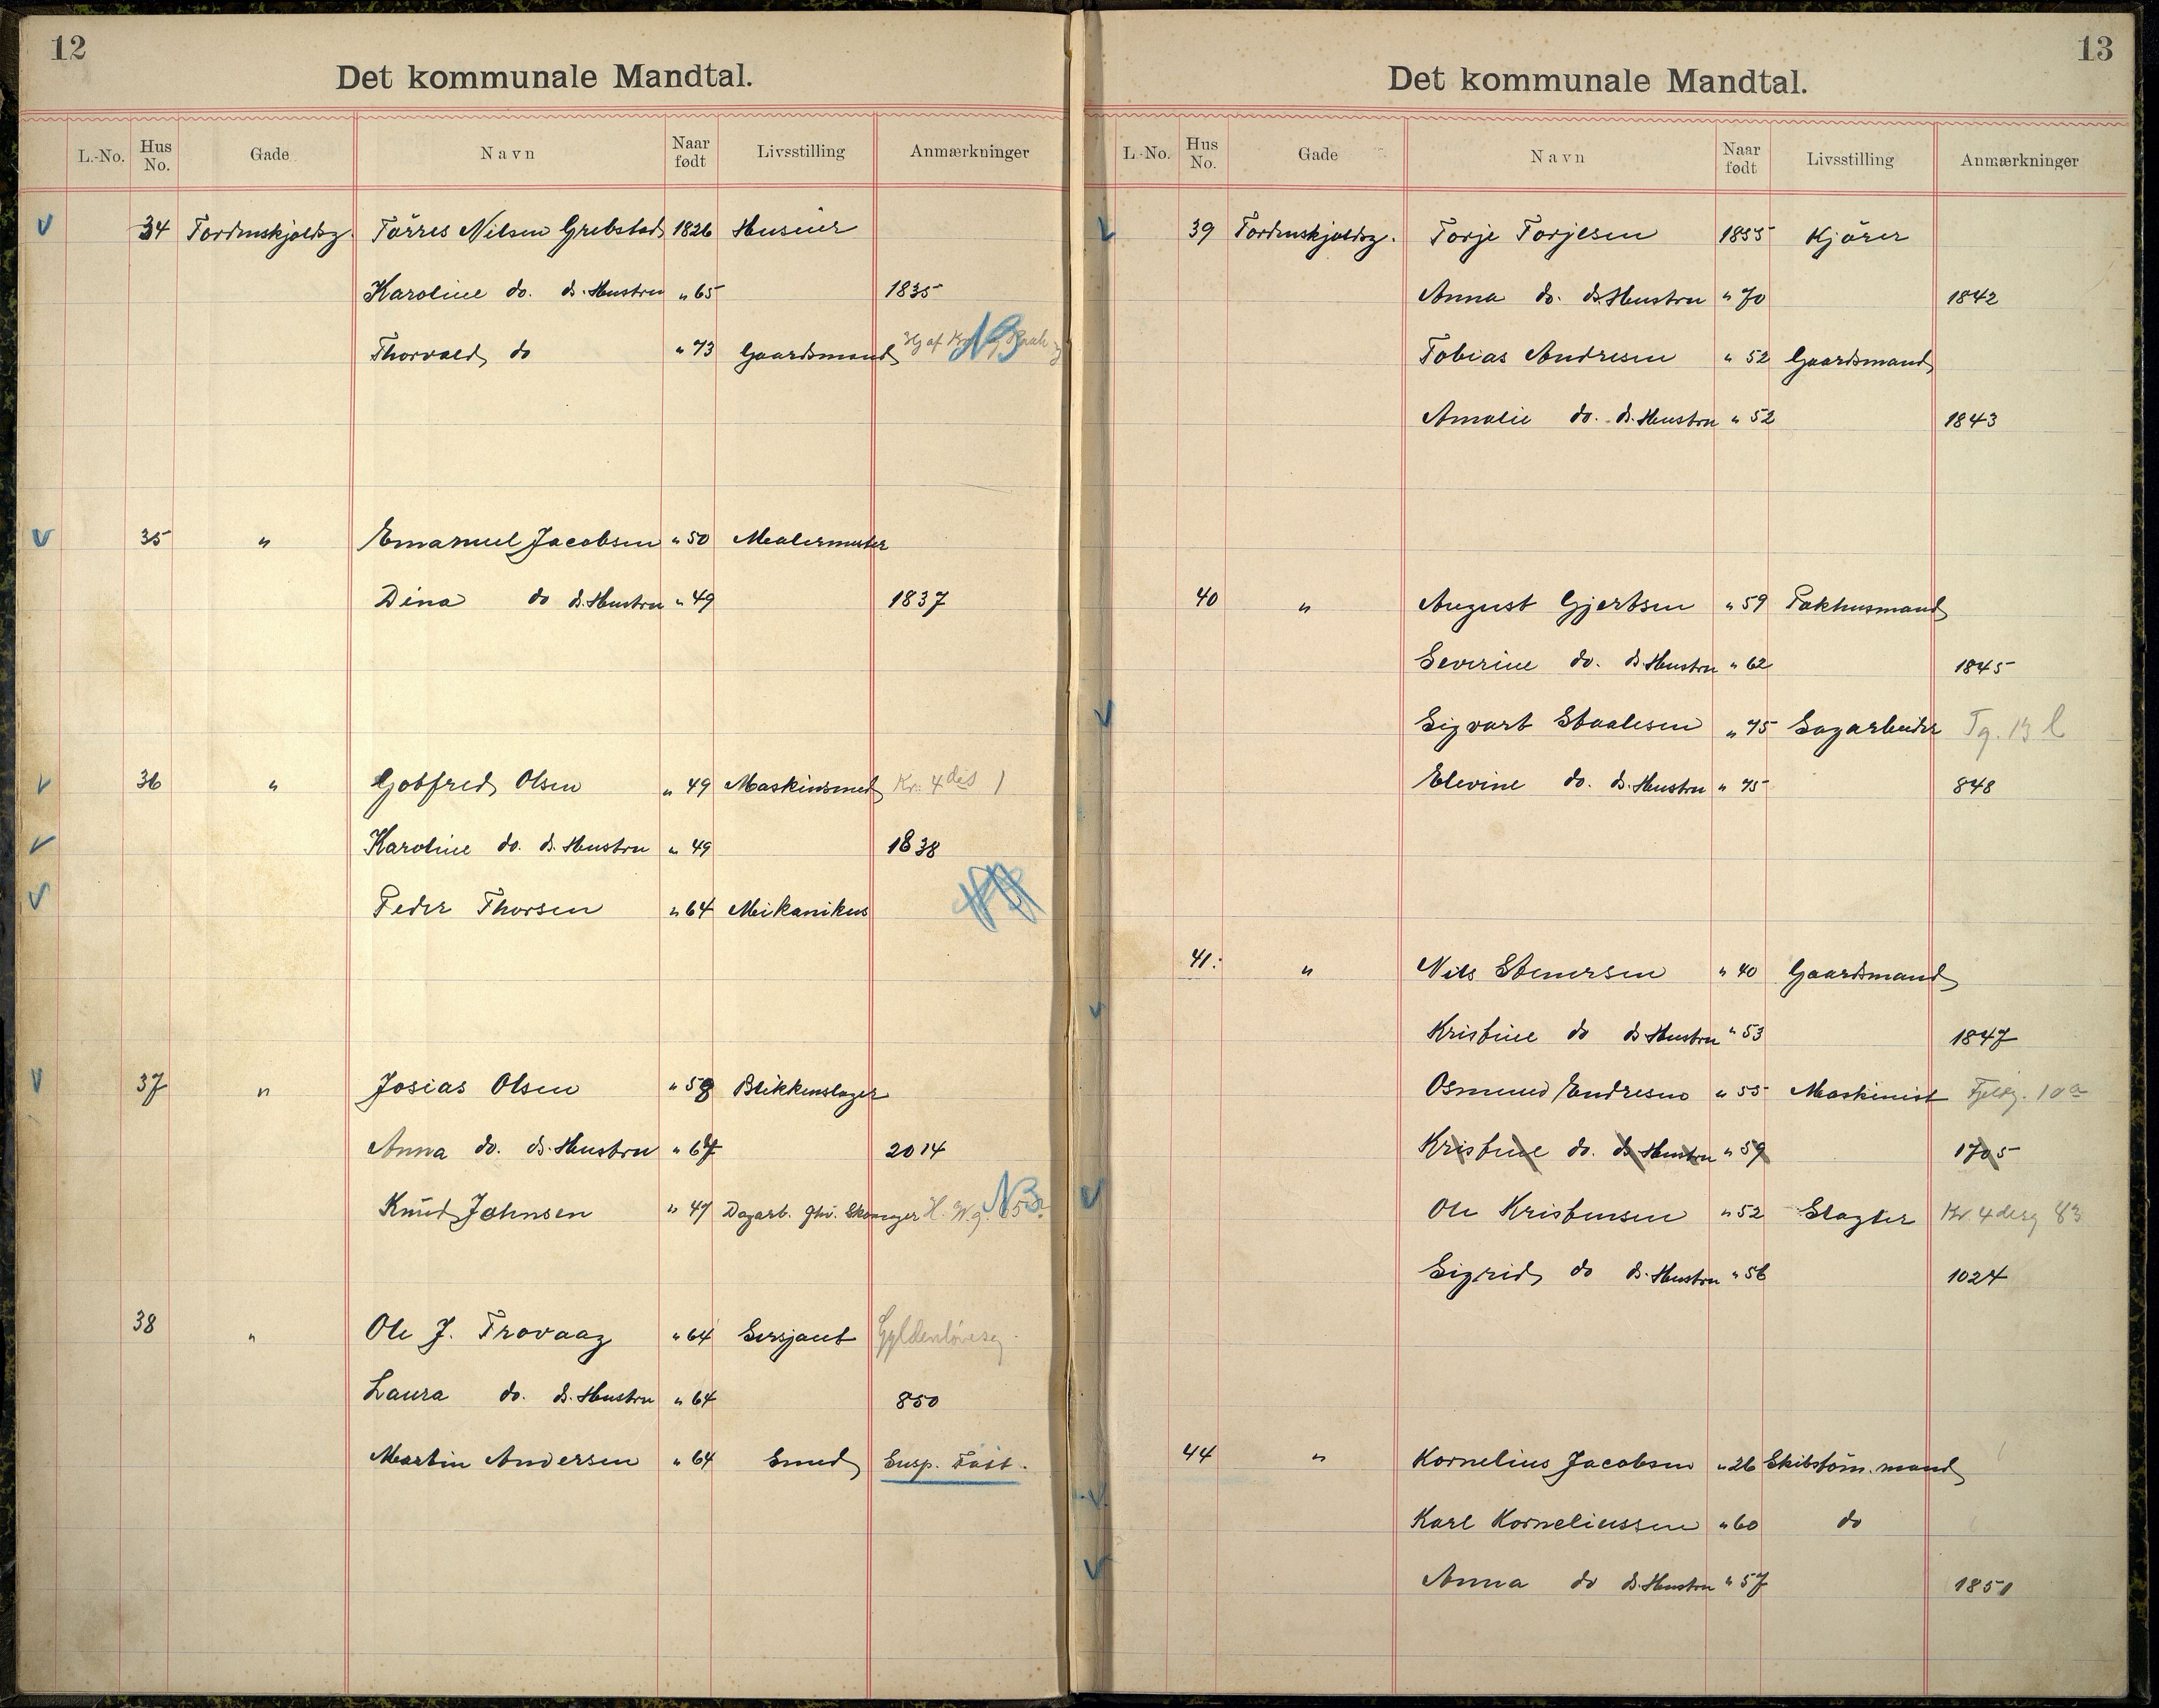 12
Det kommunale Mandtal.
L.-No. Hus No. Gade Navn Naar født Livsstilling Anmærkninger
34 Tordenskjoldsg. Tørres Nilsen Grebstad 1826 Huseier
Karoline do. ds. Hustru " 65 1835
Thorvald do " 73 Gaardsmand NB
35 " Emanuel Jacobsen " 50 Malermester
Dina do ds. Hustru " 49 1837
36 " Gotfred Olsen " 49 Maskinsmed Kr. 4des 1
Karoline do. ds. Hustru " 49 1838
Peder Thorsen " 64 Meikanikus
37 " Josias Olsen " 58 Blikkenslager
Anna do. ds. Hustru " 67 2014
Knud Johnsen " 47 Dagarb. Ghv. Skansegr NB
38 " Ole J. Trovaag " 64 Sersjant Gyldenløvesg.
Laura do. ds. Hustru " 64 850
Martin Andersen " 64 Smed Susp. Fatt.
13
Det kommunale Mandtal.
L.-No. Hus No. Gade Navn Naar født Livsstilling Anmærkninger
39 Tordenskjoldsg. Torje Torjesen 1855 Kjører
Anna do. ds. Hustru " 70 1842
Tobias Andresen " 52 Gaardsmand
Amalie do. ds. Hustru " 52 1843
40 " August Gjertsen " 59 Pakhusmand
Severine do. ds. Hustru " 62 1845
Sigvart Staalesen " 75 Sagarbeider Tg. 13 b
Elevine do. ds. Hustru " 75 848
41. " Nils Stenersen " 40 Gaardsmand
Kristine do ds. Hustru " 53 1847
Osmund Endresen " 55 Maskinist Fjeldg. 10a
Kristine do. ds. Hustru " 59 1705
Ole Kristensen " 52 Slagter Kr 4desg 83
Sigrid do ds. Hustru " 56 1024
44 " Kornelius Jacobsen " 26 Skibstøm.mand
Karl Korneliussen " 60 do
Anna do ds. Hustru " 57 1851